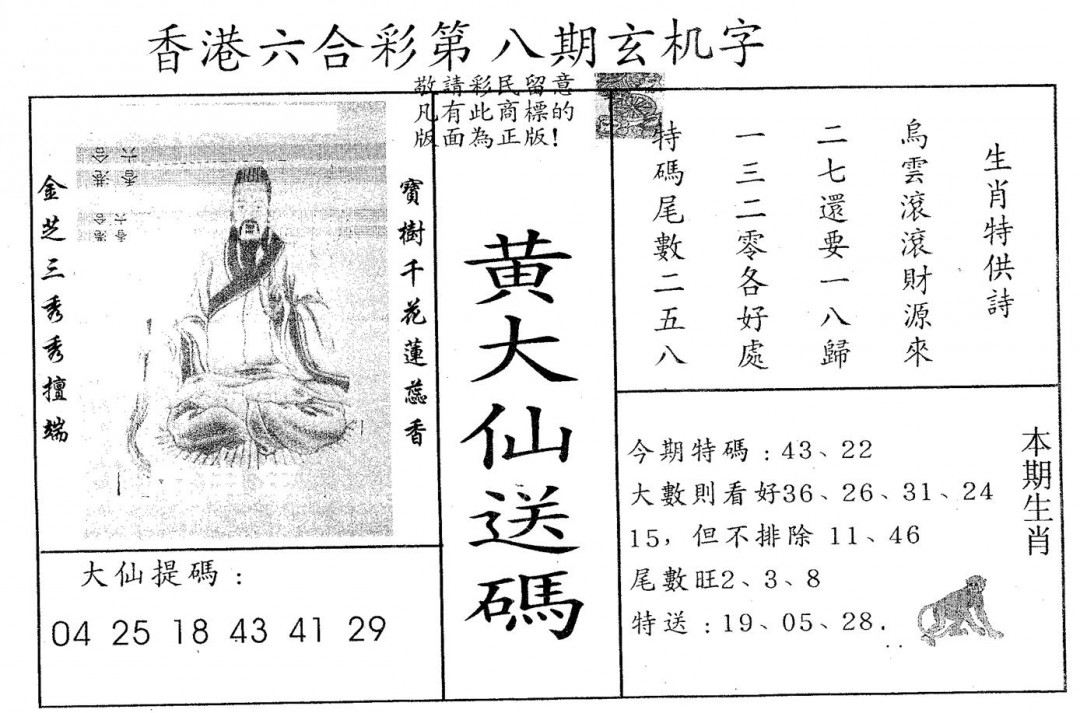 香港六合彩第八期玄机字
敬請彩民留意
凡有此商標的
版面為正版!
寶樹千花蓮蕊香
金芝三秀秀擅端
大仙提碼：
04 25 18 43 41 29
黄大仙送碼
生肖特供詩
烏雲滾滾財源來
二七還要一八歸
一三二零各好處
特碼尾數二五八
本期生肖
今期特碼：43、22
大數則看好36、26、31、24
15，但不排除 11、46
尾數旺2、3、8
特送：19、05、28.